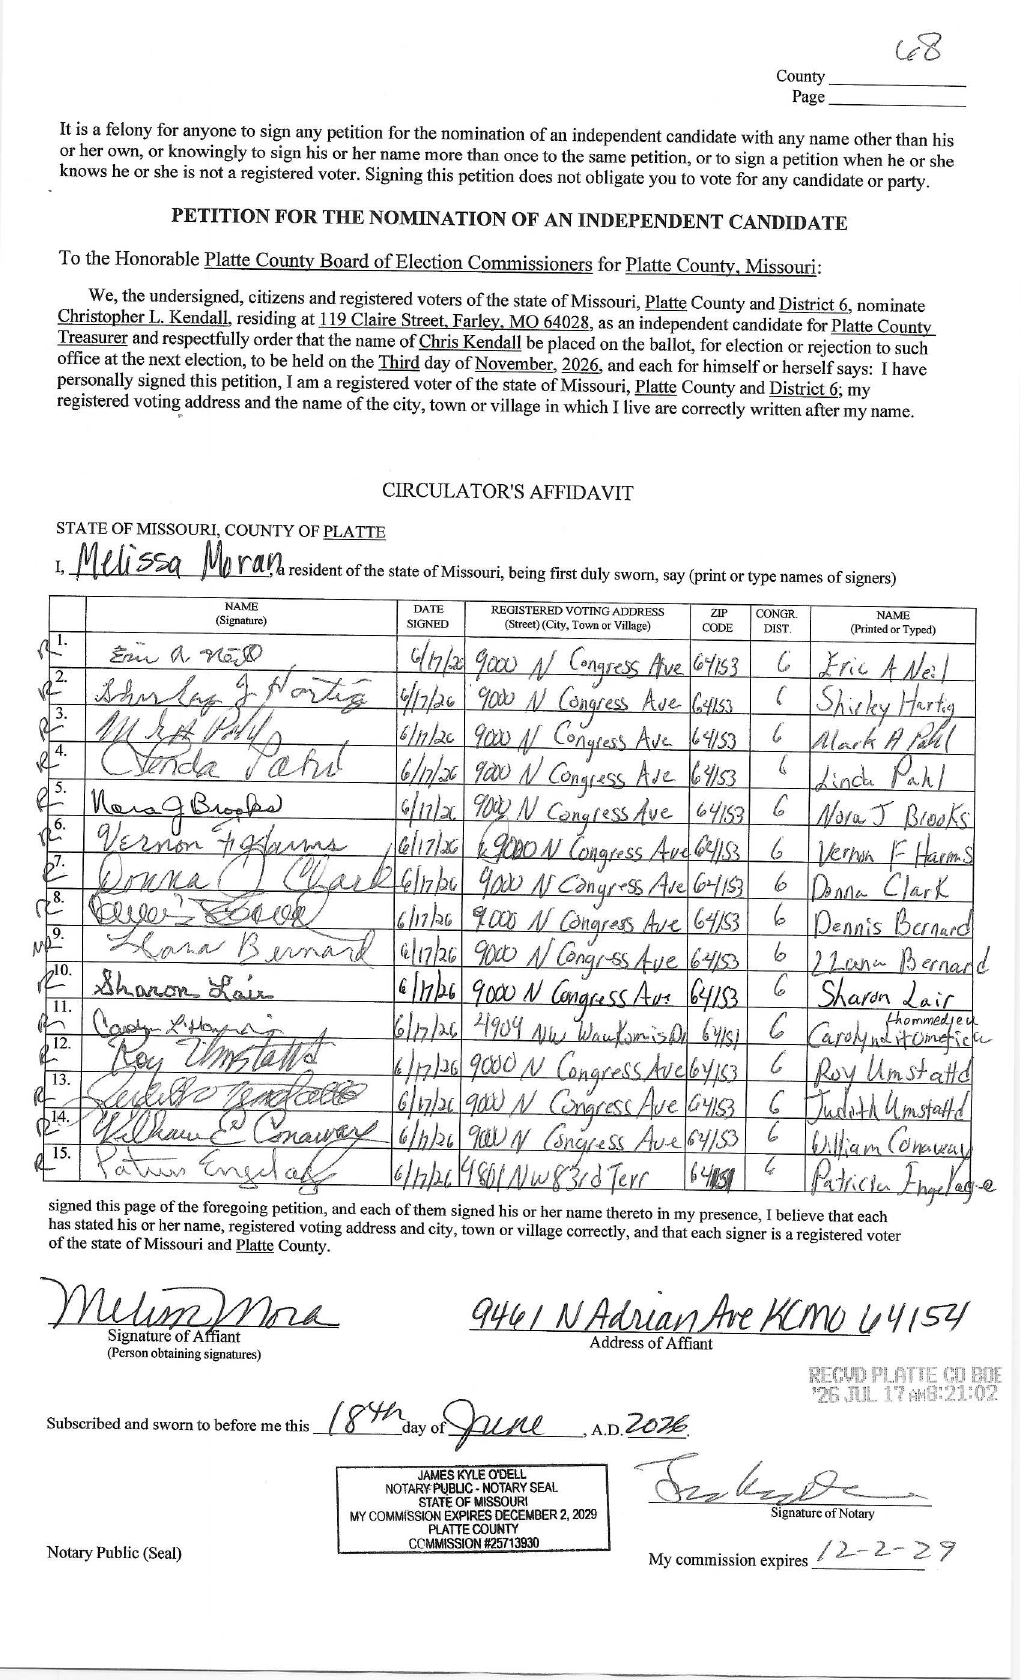 68
County
Page
It is a felony for anyone to sign any petition for the nomination of an independent candidate with any name other than his
or her own, or knowingly to sign his or her name more than once to the same petition, or to sign a petition when he or she
knows he or she is not a registered voter. Signing this petition does not obligate you to vote for any candidate or party.
PETITION FOR THE NOMINATION OF AN INDEPENDENT CANDIDATE
To the Honorable Platte County Board of Election Commissioners for Platte County, Missouri:
We, the undersigned, citizens and registered voters of the state of Missouri, Platte County and District 6, nominate
Christopher L. Kendall, residing at 119 Claire Street, Farley, MO 64028, as an independent candidate for Platte County
Treasurer and respectfully order that the name of Chris Kendall be placed on the ballot, for election or rejection to such
office at the next election, to be held on the Third day of November, 2026, and each for himself or herself says: I have
personally signed this petition, I am a registered voter of the state of Missouri, Platte County and District 6; my
registered voting address and the name of the city, town or village in which I live are correctly written after my name.
CIRCULATOR'S AFFIDAVIT
STATE OF MISSOURI, COUNTY OF PLATTE
I, Melissa Moran, a resident of the state of Missouri, being first duly sworn, say (print or type names of signers)
NAME (Signature) DATE SIGNED REGISTERED VOTING ADDRESS (Street) (City, Town or Village) ZIP CODE CONGR. DIST. NAME (Printed or Typed)
R 1. Eric A Neil 6/17/26 9000 N Congress Ave 64153 6 Eric A Neil
R 2. Shirley J Hartig 6/17/26 9000 N Congress Ave 64153 6 Shirley Hartig
R 3. Mark A Pahl 6/17/26 9000 N Congress Ave 64153 6 Mark A Pahl
R 4. Linda Pahl 6/17/26 9000 N Congress Ave 64153 6 Linda Pahl
R 5. Nora J Brooks 6/17/26 9000 N Congress Ave 64153 6 Nora J Brooks
R 6. Vernon F Harms 6/17/26 9000 N Congress Ave 64153 6 Vernon F Harms
R 7. Donna J Clark 6/17/26 9000 N Congress Ave 64153 6 Donna Clark
R 8. Dennis Bernard 6/17/26 9000 N Congress Ave 64153 6 Dennis Bernard
9. Llana Bernard 6/17/26 9000 N Congress Ave 64153 6 Llana Bernard
R 10. Sharon Lair 6/17/26 9000 N Congress Ave 64153 6 Sharon Lair
R 11. Carolyn 6/17/26 4904 NW Waukomis Dr 64151 6 Carolyn
R 12. Roy Umstattd 6/17/26 9000 N Congress Ave 64153 6 Roy Umstattd
R 13. Judith Umstattd 6/17/26 9000 N Congress Ave 64153 6 Judith Umstattd
R 14. William E Conaway 6/17/26 9000 N Congress Ave 64153 6 William Conaway
R 15. Patricia Engelage 6/17/26 4801 NW 83rd Terr 64151 6 Patricia Engelage
signed this page of the foregoing petition, and each of them signed his or her name thereto in my presence, I believe that each
has stated his or her name, registered voting address and city, town or village correctly, and that each signer is a registered voter
of the state of Missouri and Platte County.
Melissa Moran 9461 N Adrian Ave KCMO 64154
Signature of Affiant Address of Affiant
(Person obtaining signatures)
RECVD PLATTE CO BOE
'26 JUL 17 AM8:21:02
Subscribed and sworn to before me this 18th day of June, A.D. 2026.
JAMES KYLE O'DELL
NOTARY PUBLIC - NOTARY SEAL
STATE OF MISSOURI
MY COMMISSION EXPIRES DECEMBER 2, 2029
PLATTE COUNTY
COMMISSION #25713930
Signature of Notary
Notary Public (Seal)
My commission expires 12-2-29